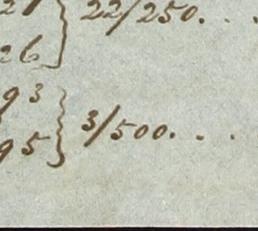 27 } 22/250. . .
26
93 } 3/500. . .
95